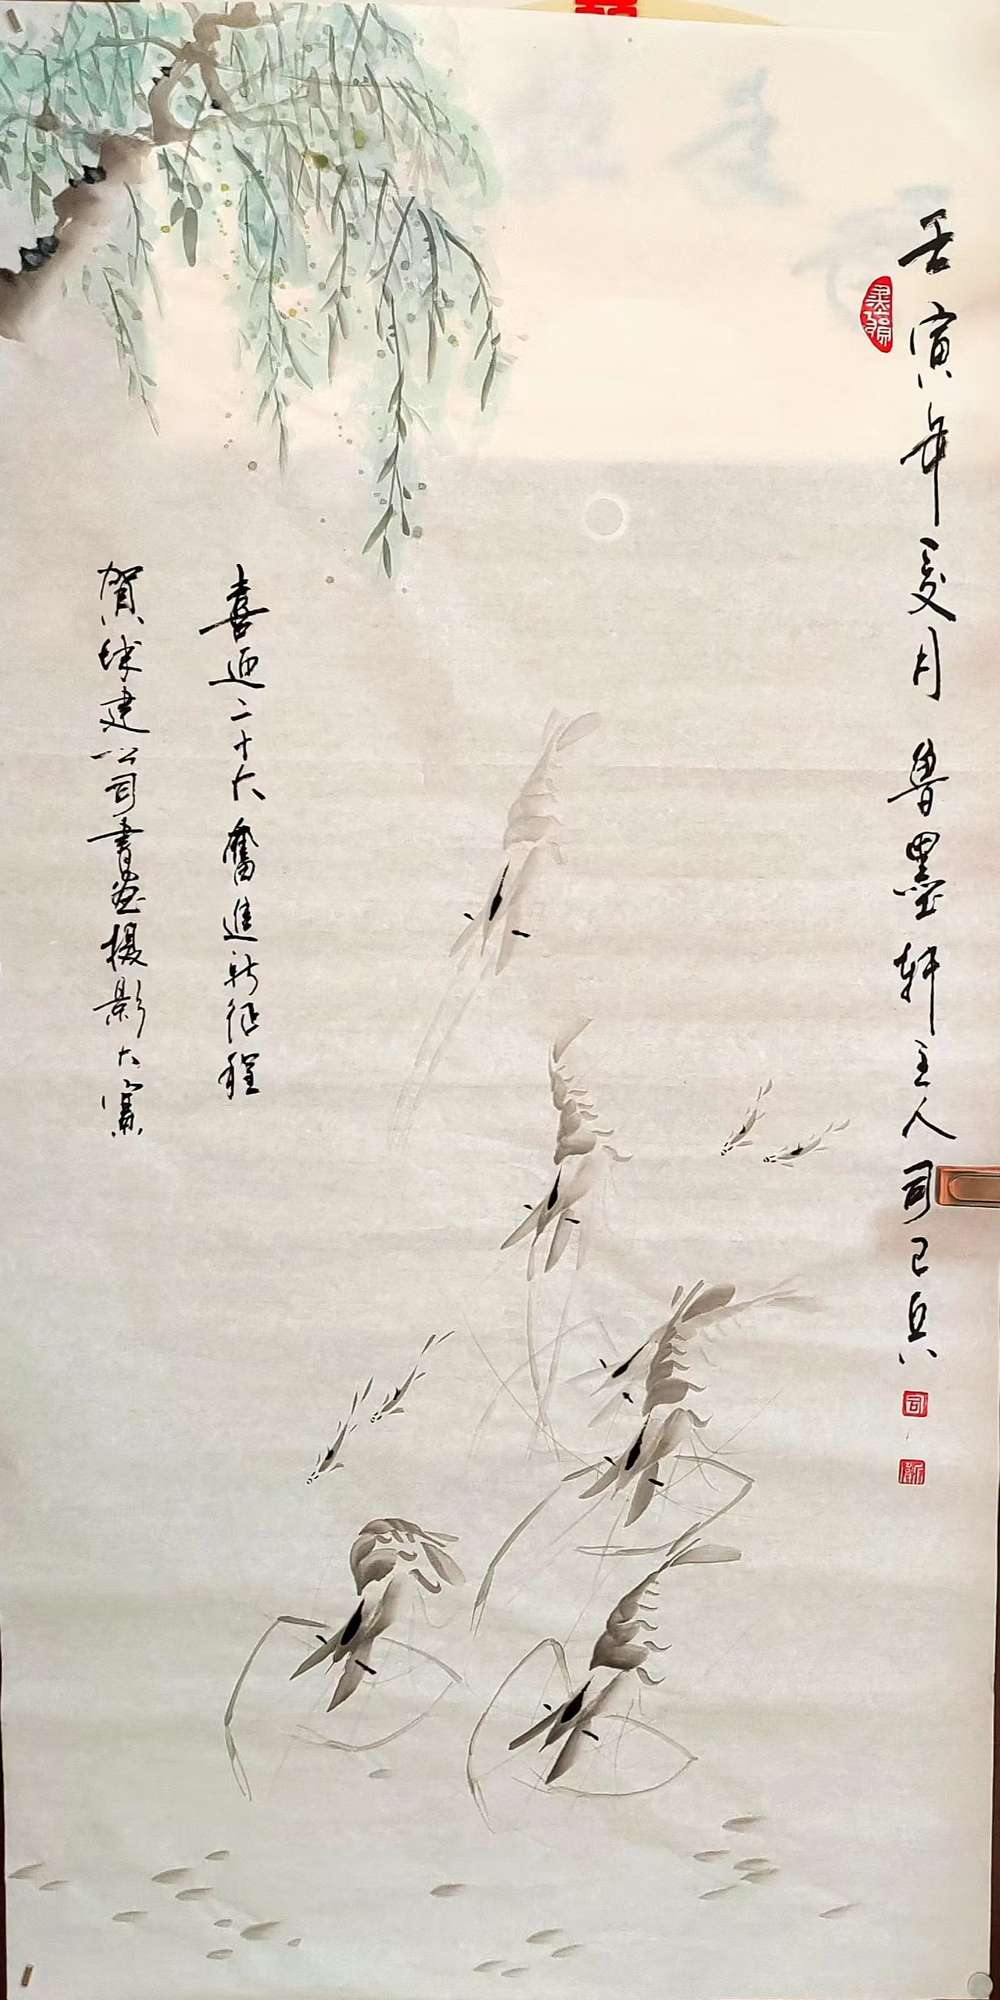 壬寅年夏月 鲁墨轩主人司卫兵
喜迎二十大奮進新征程
賀城建公司書画摄影大赛
司